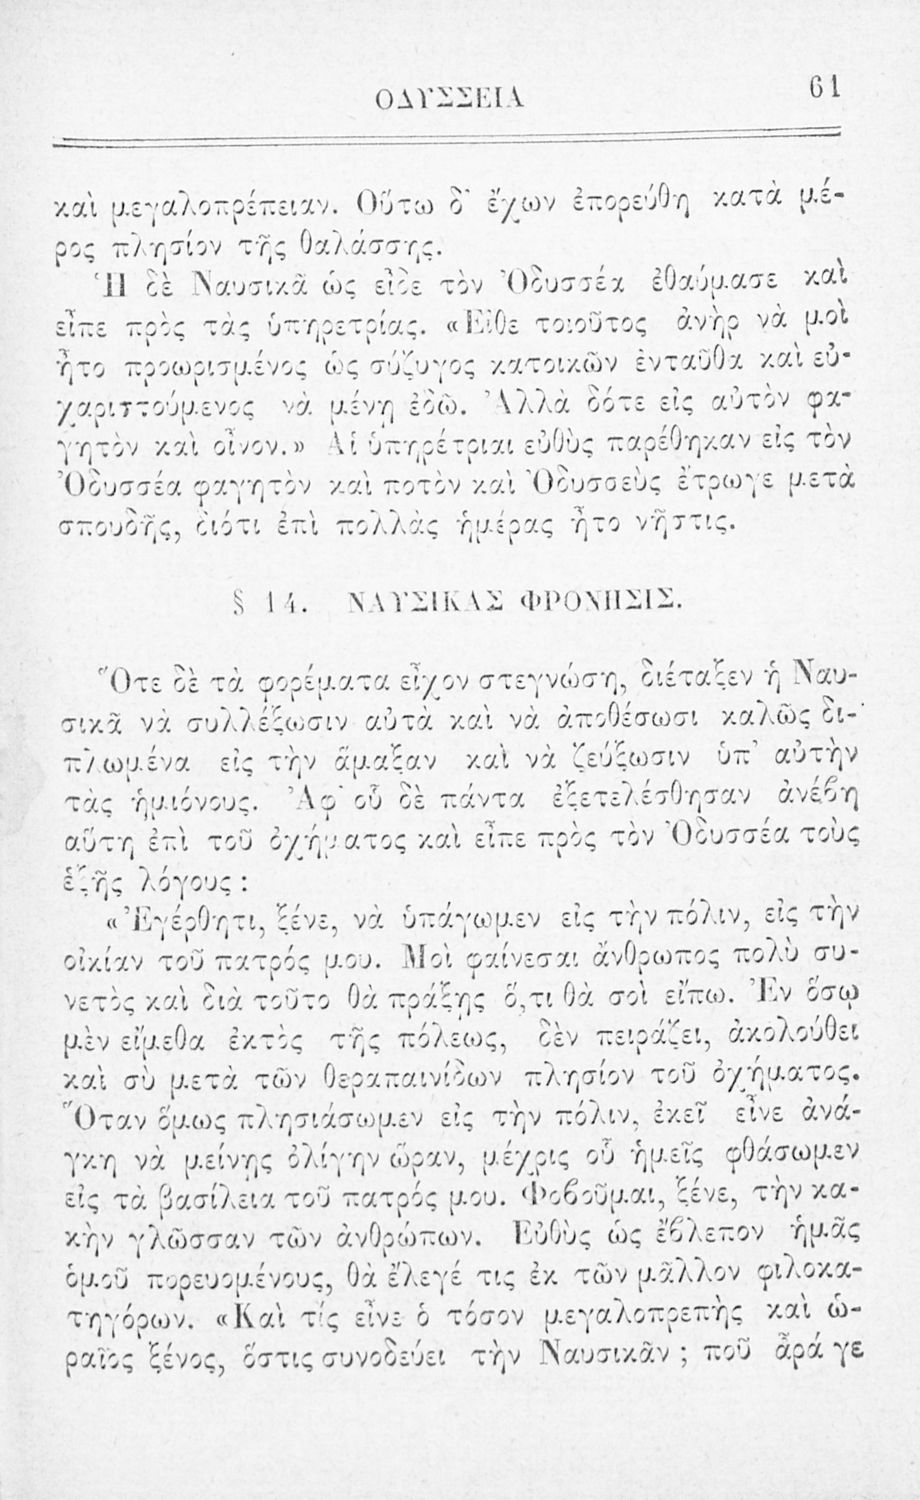 ΟΔΥΣΣΕΙΑ 61
καὶ μεγαλοπρέπειαν. Οὕτω δ' ἔχων ἐπορεύθη κατὰ μέ-
ρος πλησίον τῆς θαλάσσης.
Ἡ δὲ Ναυσικᾶ ὡς εἶδε τὸν Ὀδυσσέα ἐθαύμασε καὶ
εἶπε πρὸς τὰς ὑπηρετρίας. «Εἴθε τοιοῦτος ἀνὴρ νὰ μοὶ
ἦτο προωρισμένος ὡς σύζυγος κατοικῶν ἐνταῦθα καὶ εὐ-
χαριστούμενος νὰ μένῃ ἐδῶ. Ἀλλὰ δότε εἰς αὐτὸν φα-
γητὸν καὶ οἶνον.» Αἱ ὑπηρέτριαι εὐθὺς παρέθηκαν εἰς τὸν
Ὀδυσσέα φαγητὸν καὶ ποτὸν καὶ Ὀδυσσεὺς ἔτρωγε μετὰ
σπουδῆς, διότι ἐπὶ πολλὰς ἡμέρας ἦτο νῆστις.
§ 14. ΝΑΥΣΙΚΑΣ ΦΡΟΝΗΣΙΣ.
Ὅτε δὲ τὰ φορέματα εἶχον στεγνώσῃ, διέταξεν ἡ Ναυ-
σικᾶ νὰ συλλέξωσιν αὐτὰ καὶ νὰ ἀποθέσωσι καλῶς δι-
πλωμένα εἰς τὴν ἅμαξαν καὶ νὰ ζεύξωσιν ὑπ' αὐτὴν
τὰς ἡμιόνους. Ἀφ' οὗ δὲ πάντα ἐξετελέσθησαν ἀνέβη
αὕτη ἐπὶ τοῦ ὀχήματος καὶ εἶπε πρὸς τὸν Ὀδυσσέα τοὺς
ἑξῆς λόγους :
«Ἐγέρθητι, ξένε, νὰ ὑπάγωμεν εἰς τὴν πόλιν, εἰς τὴν
οἰκίαν τοῦ πατρός μου. Μοὶ φαίνεσαι ἄνθρωπος πολὺ συ-
νετὸς καὶ διὰ τοῦτο θὰ πράξῃς ὅ,τι θὰ σοὶ εἴπω. Ἐν ὅσῳ
μὲν εἴμεθα ἐκτὸς τῆς πόλεως, δὲν πειράζει, ἀκολούθει
καὶ σὺ μετὰ τῶν θεραπαινίδων πλησίον τοῦ ὀχήματος.
Ὅταν ὅμως πλησιάσωμεν εἰς τὴν πόλιν, ἐκεῖ εἶνε ἀνά-
γκη νὰ μείνῃς ὀλίγην ὥραν, μέχρις οὗ ἡμεῖς φθάσωμεν
εἰς τὰ βασίλεια τοῦ πατρός μου. Φοβοῦμαι, ξένε, τὴν κα-
κὴν γλῶσσαν τῶν ἀνθρώπων. Εὐθὺς ὡς ἔβλεπον ἡμᾶς
ὁμοῦ πορευομένους, θὰ ἔλεγέ τις ἐκ τῶν μᾶλλον φιλοκα-
τηγόρων. «Καὶ τίς εἶνε ὁ τόσον μεγαλοπρεπὴς καὶ ὡ-
ραῖος ξένος, ὅστις συνοδεύει τὴν Ναυσικᾶν ; ποῦ ἆρά γε